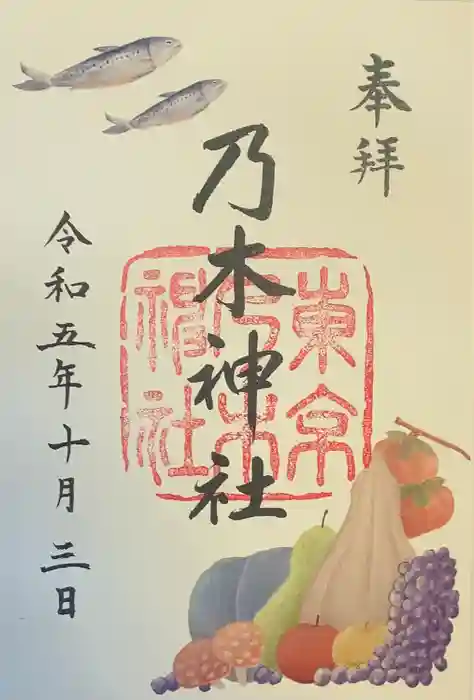 奉拝
乃木神社
東京
乃木
神社
令和五年十月三日